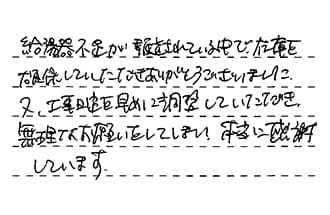 給湯器不足が騒がれている中で、在庫を
確保していただきありがとうございました。
又、工事日程を早めに調整していただき、
無理なお願いをしてしまい、本当に感謝
しています。